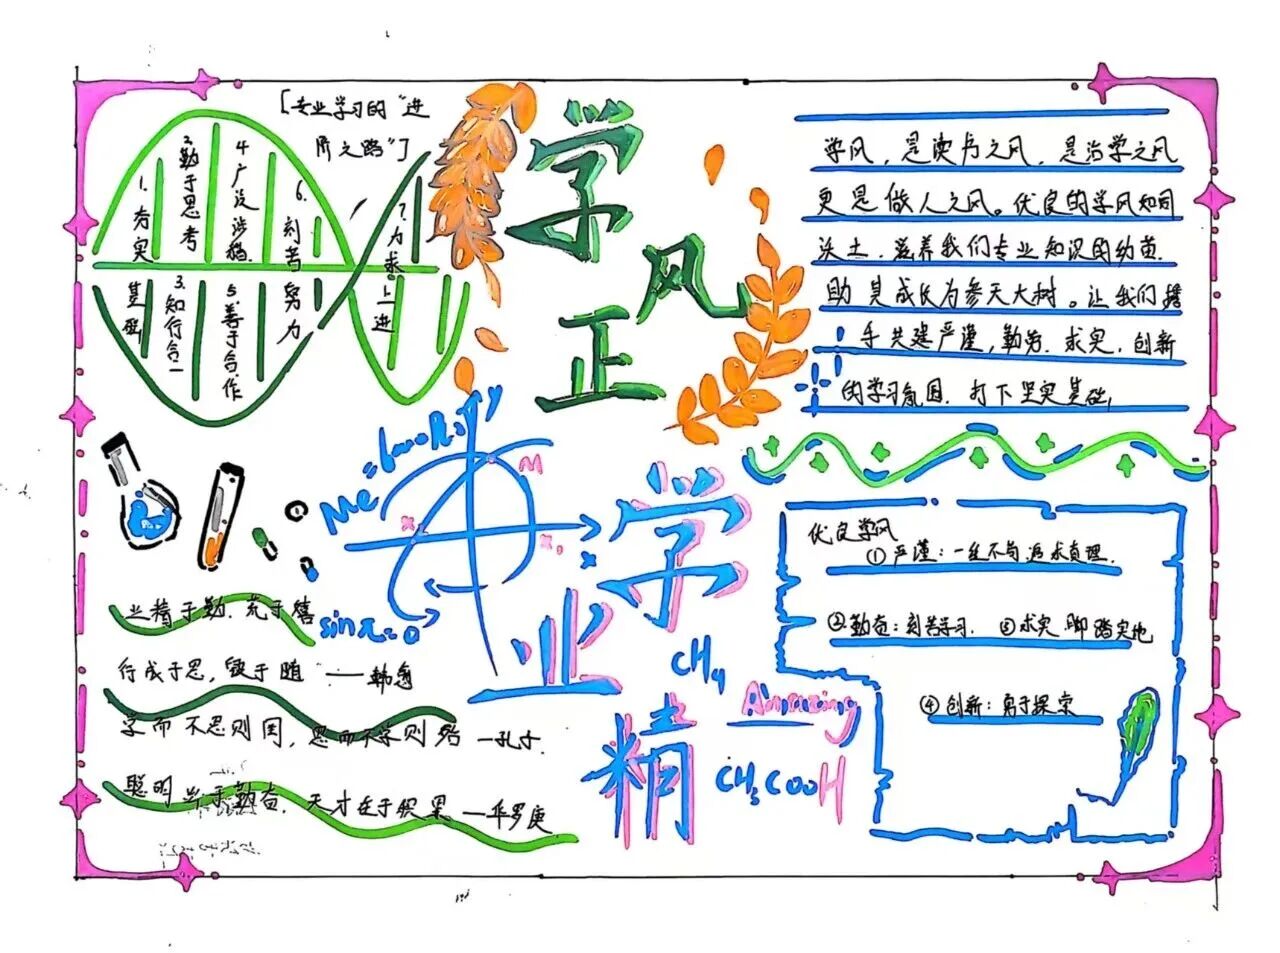 [专业学习的“进
阶之路”]
1. 夯实
基础
2. 勤于思考
3. 知行合一
4 广泛涉猎.
5. 善于合作
6. 刻苦
努力
7. 力求
上进
学
风
正
学风,是读书之风,是治学之风
更是做人之风。优良的学风如同
沃土.滋养我们专业知识的幼苗.
助其成长为参天大树。让我们携
手共建严谨,勤劳.求实.创新
的学习氛围.打下坚实基础,
y
M
x
sinπ=0
学
业
精
CH4
Amazing
CH3COOH
优良学风
①严谨:一丝不苟追求真理.
②勤奋:刻苦学习. ③求实 脚踏实地
④创新:勇于探索
业精于勤.荒于嬉
行成于思,毁于随 ——韩愈
学而不思则罔,思而不学则殆 —孔子.
聪明出于勤奋.天才在于积累 —华罗庚